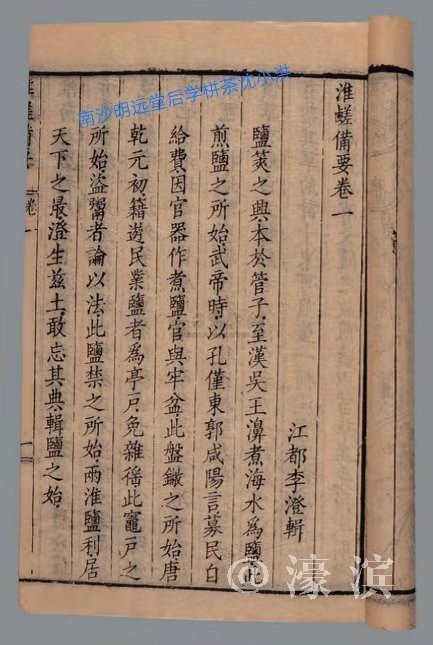 淮鹺備要卷一
江都李澄輯
鹽筴之興本於管子至漢吳王濞煮海水為鹽此
煎鹽之所始武帝時以孔僅東郭咸陽言募民自
給費因官器作煮鹽官與牢盆此盤鐵之所始唐
乾元初籍遊民業鹽者為亭戶免雜徭此竈戶之
所始盜鬻者論以法此鹽禁之所始兩淮鹽利居
天下之最澄生茲土敢忘其典輯鹽之始
卷一
一
南沙明远堂后学栟茶沈小洪
© 濠滨